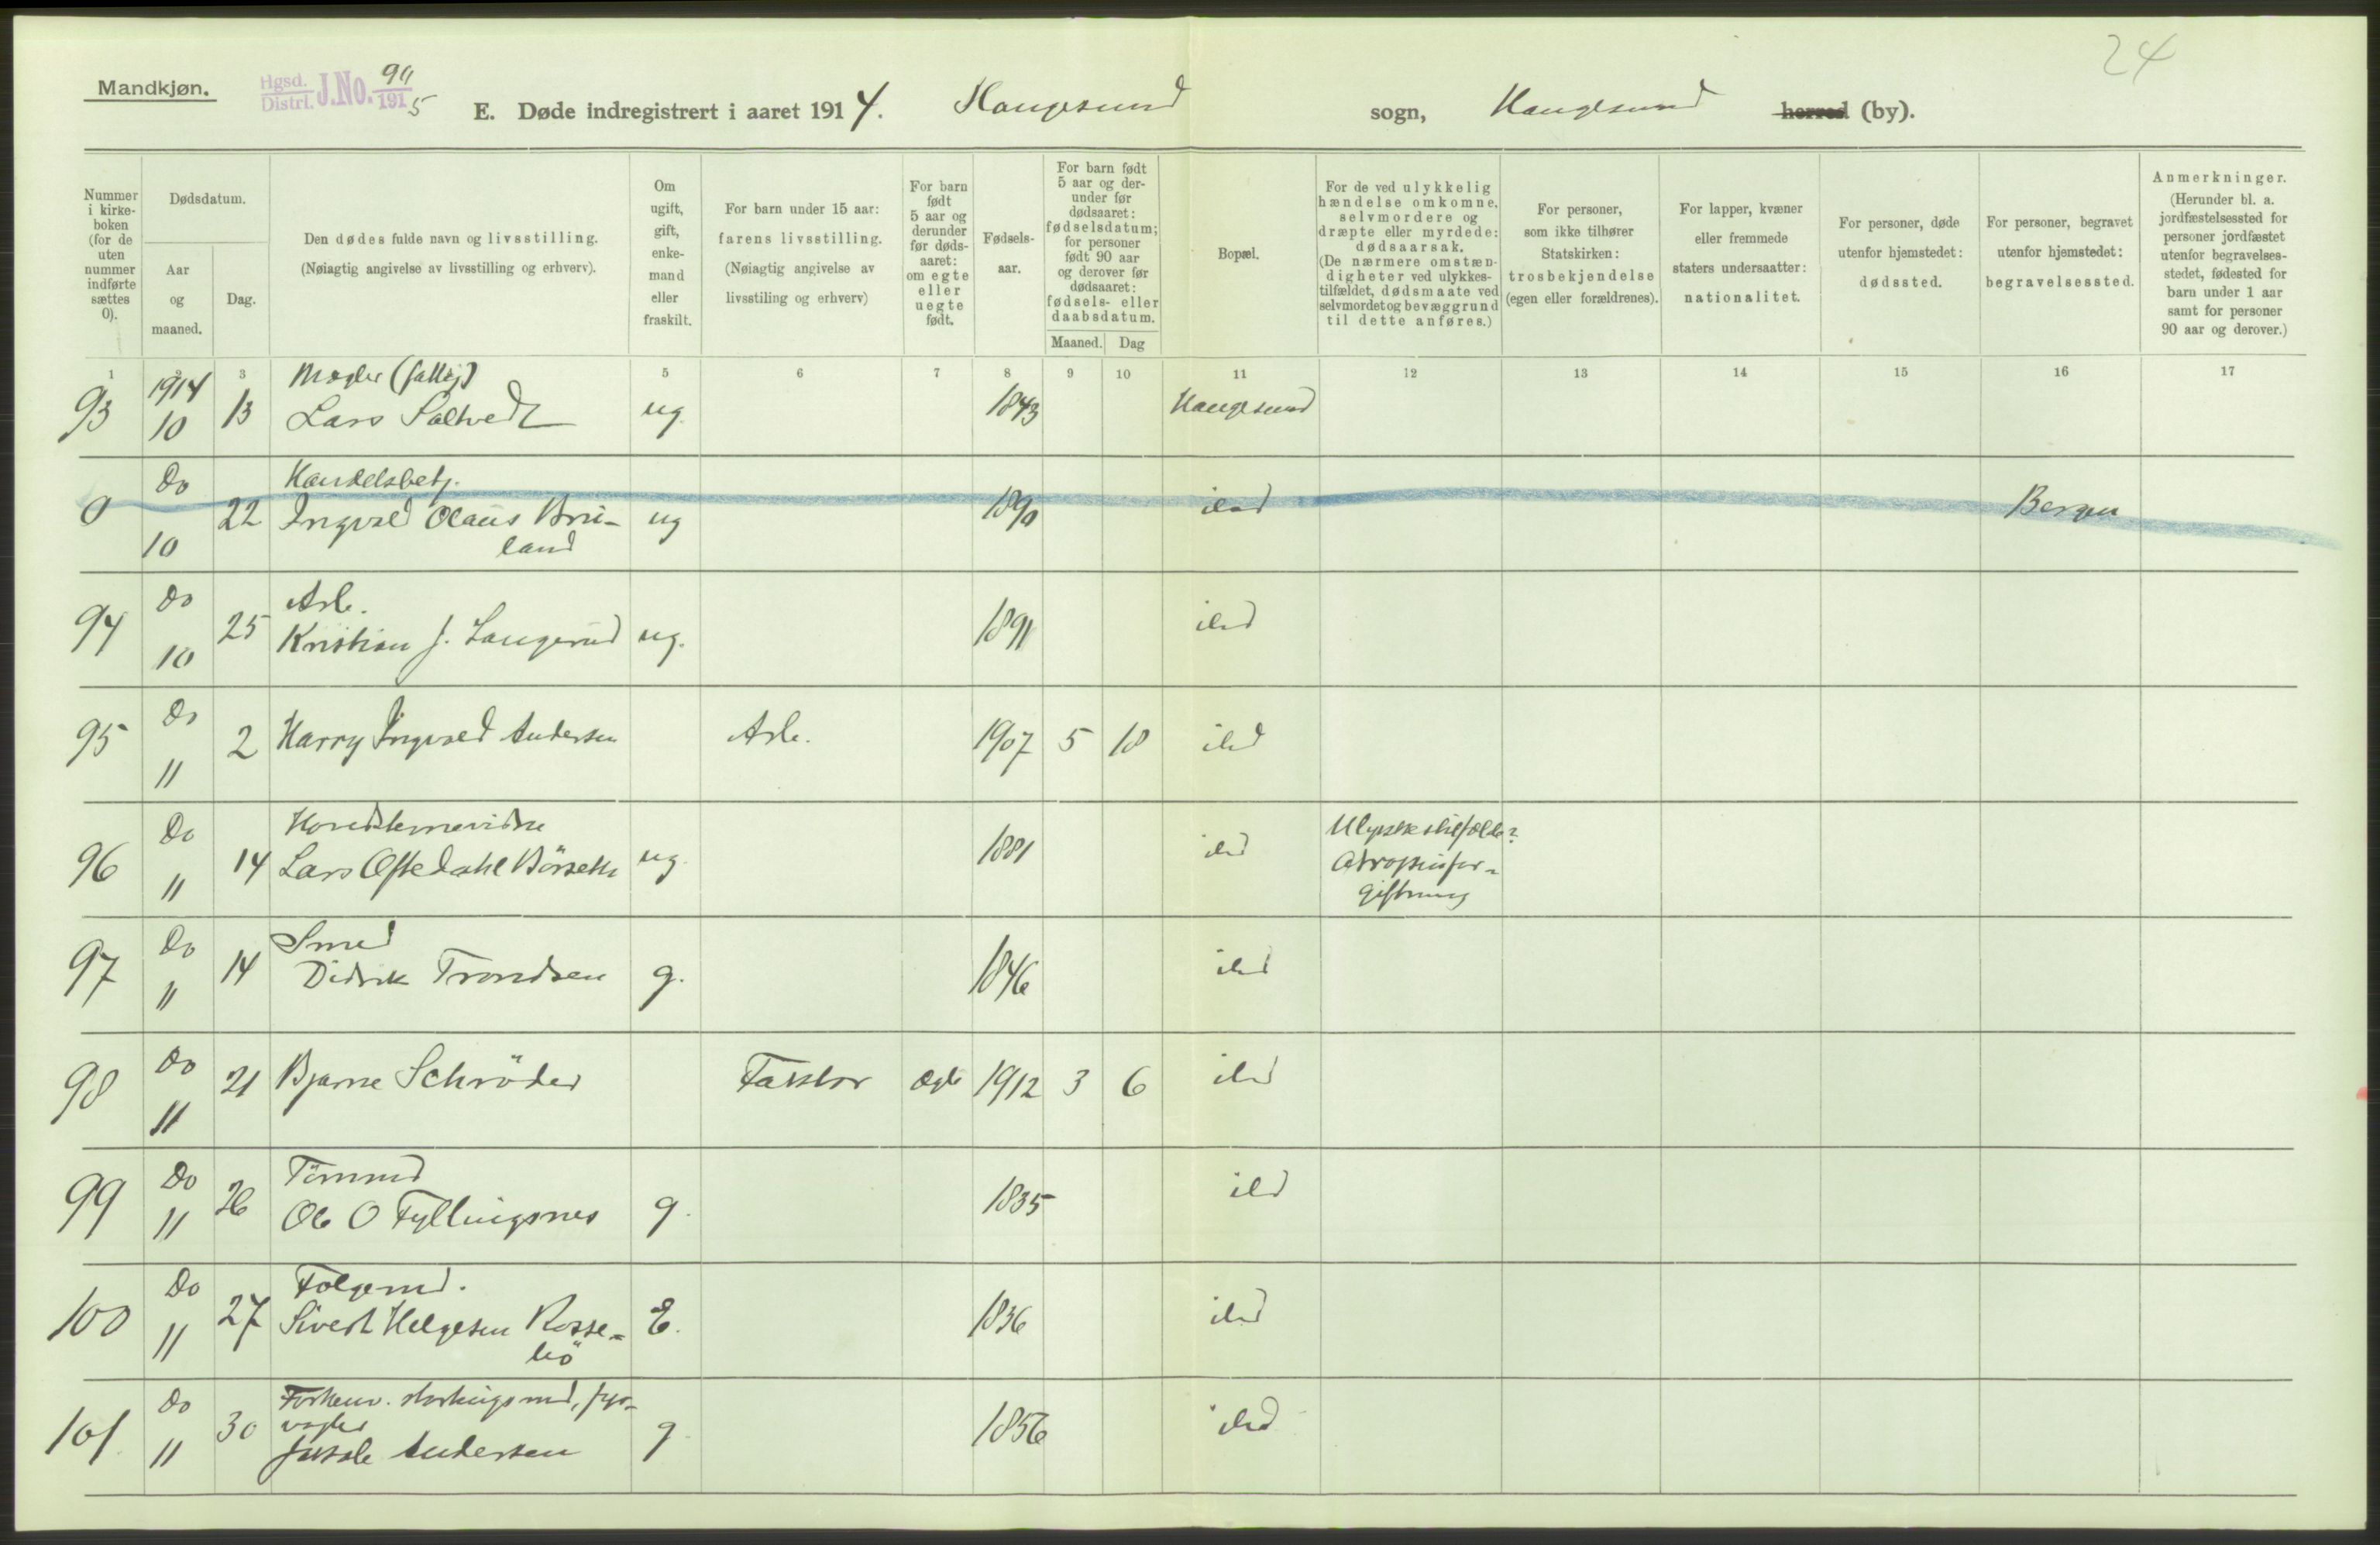 24
Mandkjøn.
Hgsd. Distri. J.No. 90/1915
E. Døde indregistrert i aaret 1914. Haugesund sogn, Haugesund herred (by).
Nummer i kirkeboken (for de uten nummer indførte sættes 0).
Dødsdatum.
Aar og maaned.
Dag.
Den dødes fulde navn og livsstilling.
(Nøiagtig angivelse av livsstilling og erhverv).
Om ugift, gift, enkemand eller fraskilt.
For barn under 15 aar: farens livsstilling.
(Nøiagtig angivelse av livsstiling og erhverv)
For barn født 5 aar og derunder før dødsaaret: om egte eller uegte født.
Fødselsaar.
For barn født 5 aar og derunder før dødsaaret: fødselsdatum; for personer født 90 aar og derover før dødsaaret: fødsels- eller daabsdatum.
Maaned. Dag
Bopæl.
For de ved ulykkelig hændelse omkomne, selvmordere og dræpte eller myrdede: dødsaarsak.
(De nærmere omstændigheter ved ulykkestilfældet, dødsmaate ved selvmordet og bevæggrund til dette anføres.)
For personer, som ikke tilhører Statskirken: trosbekjendelse (egen eller forældrenes).
For lapper, kvæner eller fremmede staters undersaatter: nationalitet.
For personer, døde utenfor hjemstedet: dødssted.
For personer, begravet utenfor hjemstedet: begravelsessted.
Anmerkninger.
(Herunder bl. a. jordfæstelsessted for personer jordfæstet utenfor begravelsesstedet, fødested for barn under 1 aar samt for personer 90 aar og derover.)
1 2 3 5 6 7 8 9 10 11 12 13 14 15 16 17
93 1914 10 13 Mægler (fattig) Lars Saltvedt ug. 1843 Haugesund
0 Do 10 22 Handelsbetj. Ingvald Olaus Bruland ug 1890 ibd Bergen
94 Do 10 25 Arb. Kristian J. Langerud ug. 1891 ibd
95 Do 11 2 Harry Ingvald Andersen Arb. 1907 5 18 ibd
96 Do 11 14 Lars Oftedahl ug. 1881 ibd Ulykkestilfælde? Atropinforgiftning
97 Do 11 14 Smed Didrik Trondsen g. 1846 ibd
98 Do 11 21 Bjarne Schröder Faktor Ægte 1912 3 6 ibd
99 Do 11 26 Tømmd Ole O Fyllingsnes g. 1835 ibd
100 Do 11 27 Følgemd. Sivert Helgesen Rossebö E. 1836 ibd
101 Do 11 30 Forhenv. stortingsmd, fyrvogter Andersen g 1856 ibd